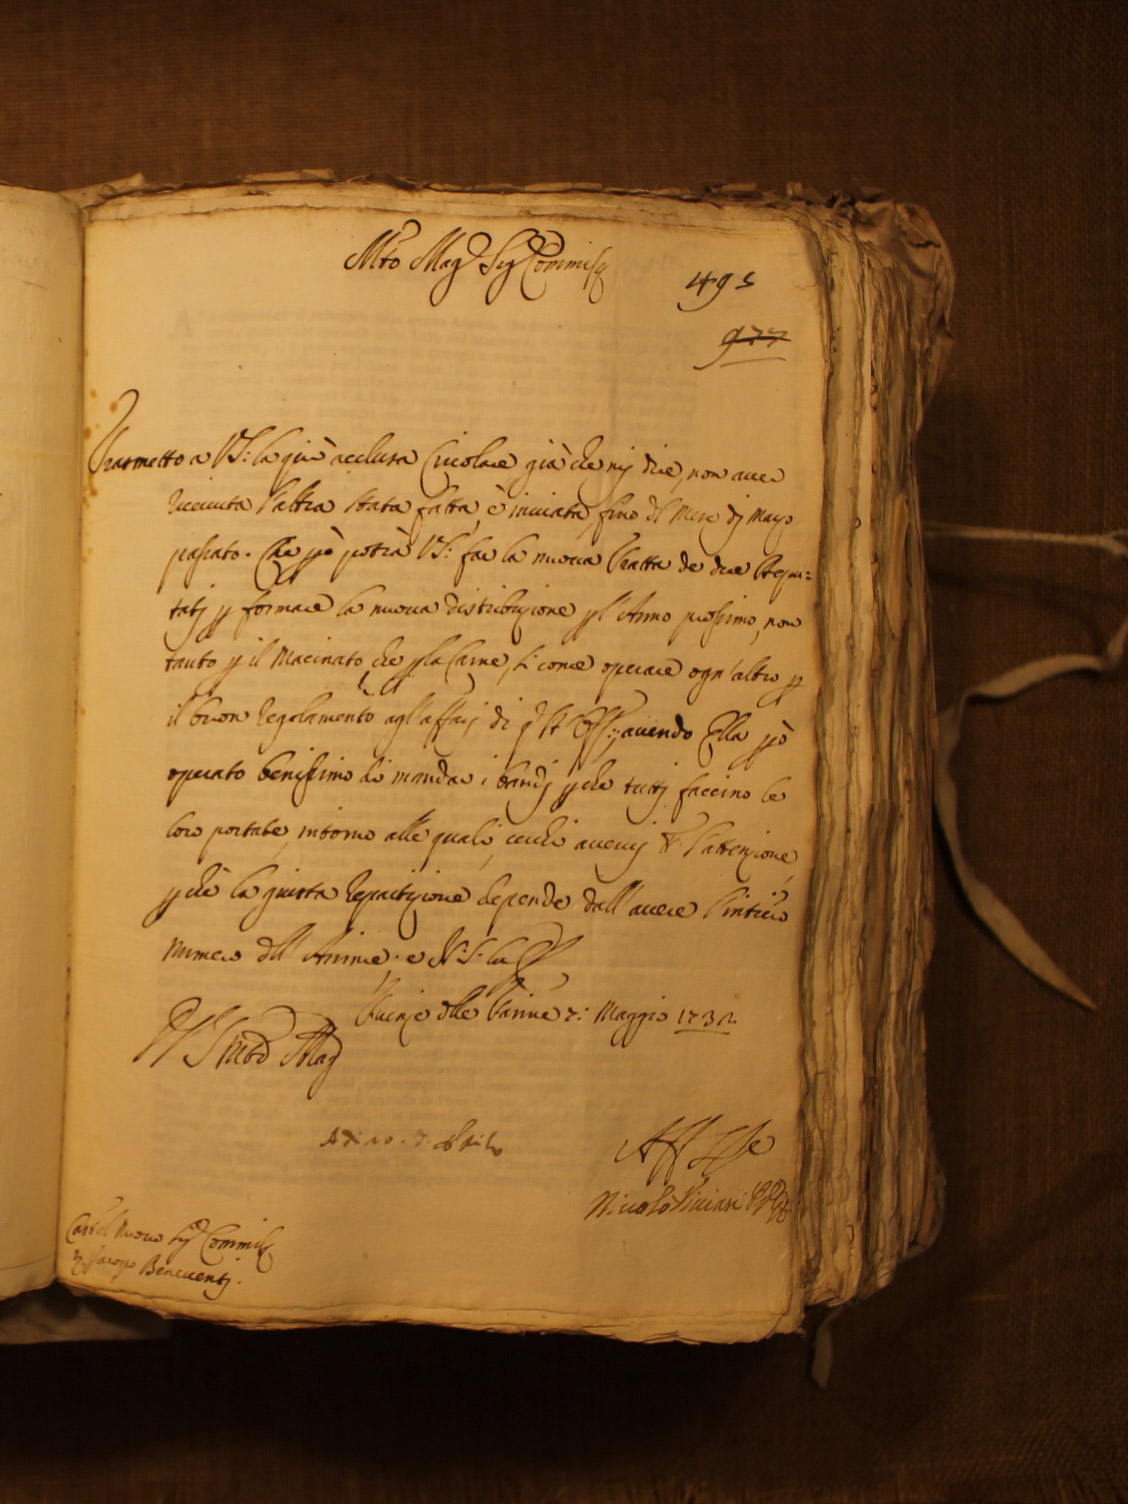 Mto Mag Sig Commiss
495
977
Trasmetto a VS: la giù acclusa Circolare già che mi dice, non aver
riceuuta l'altra stata fatta, è inuiata fino dl Mese dj Marzo
passato. Che pò potrà VS: far la nuova Tratta de due Deputatj
p formare la nuoua distribuzione pl'Anno prossimo, non
tanto p il Macinato, che pla Carne, si come operare ogn'altro p
il buon regolamento agl'affarj di, auendo Ella pò
operato benissimo di mandar i bandj pche tuttj faccino le
loro portate, intorno alle quali, l'attenzione,
pchè la giusta repartizione depende dall'auere l'intiero
numero dll'Anime; e N: S: la
Firenze dlle Farine 7: Maggio 1732
VS Mto Mag
Adi 10. d.
Aff
Nicolo Viviani
Castel Nuovo Sig Commiss
Jacopo Benvenuti.